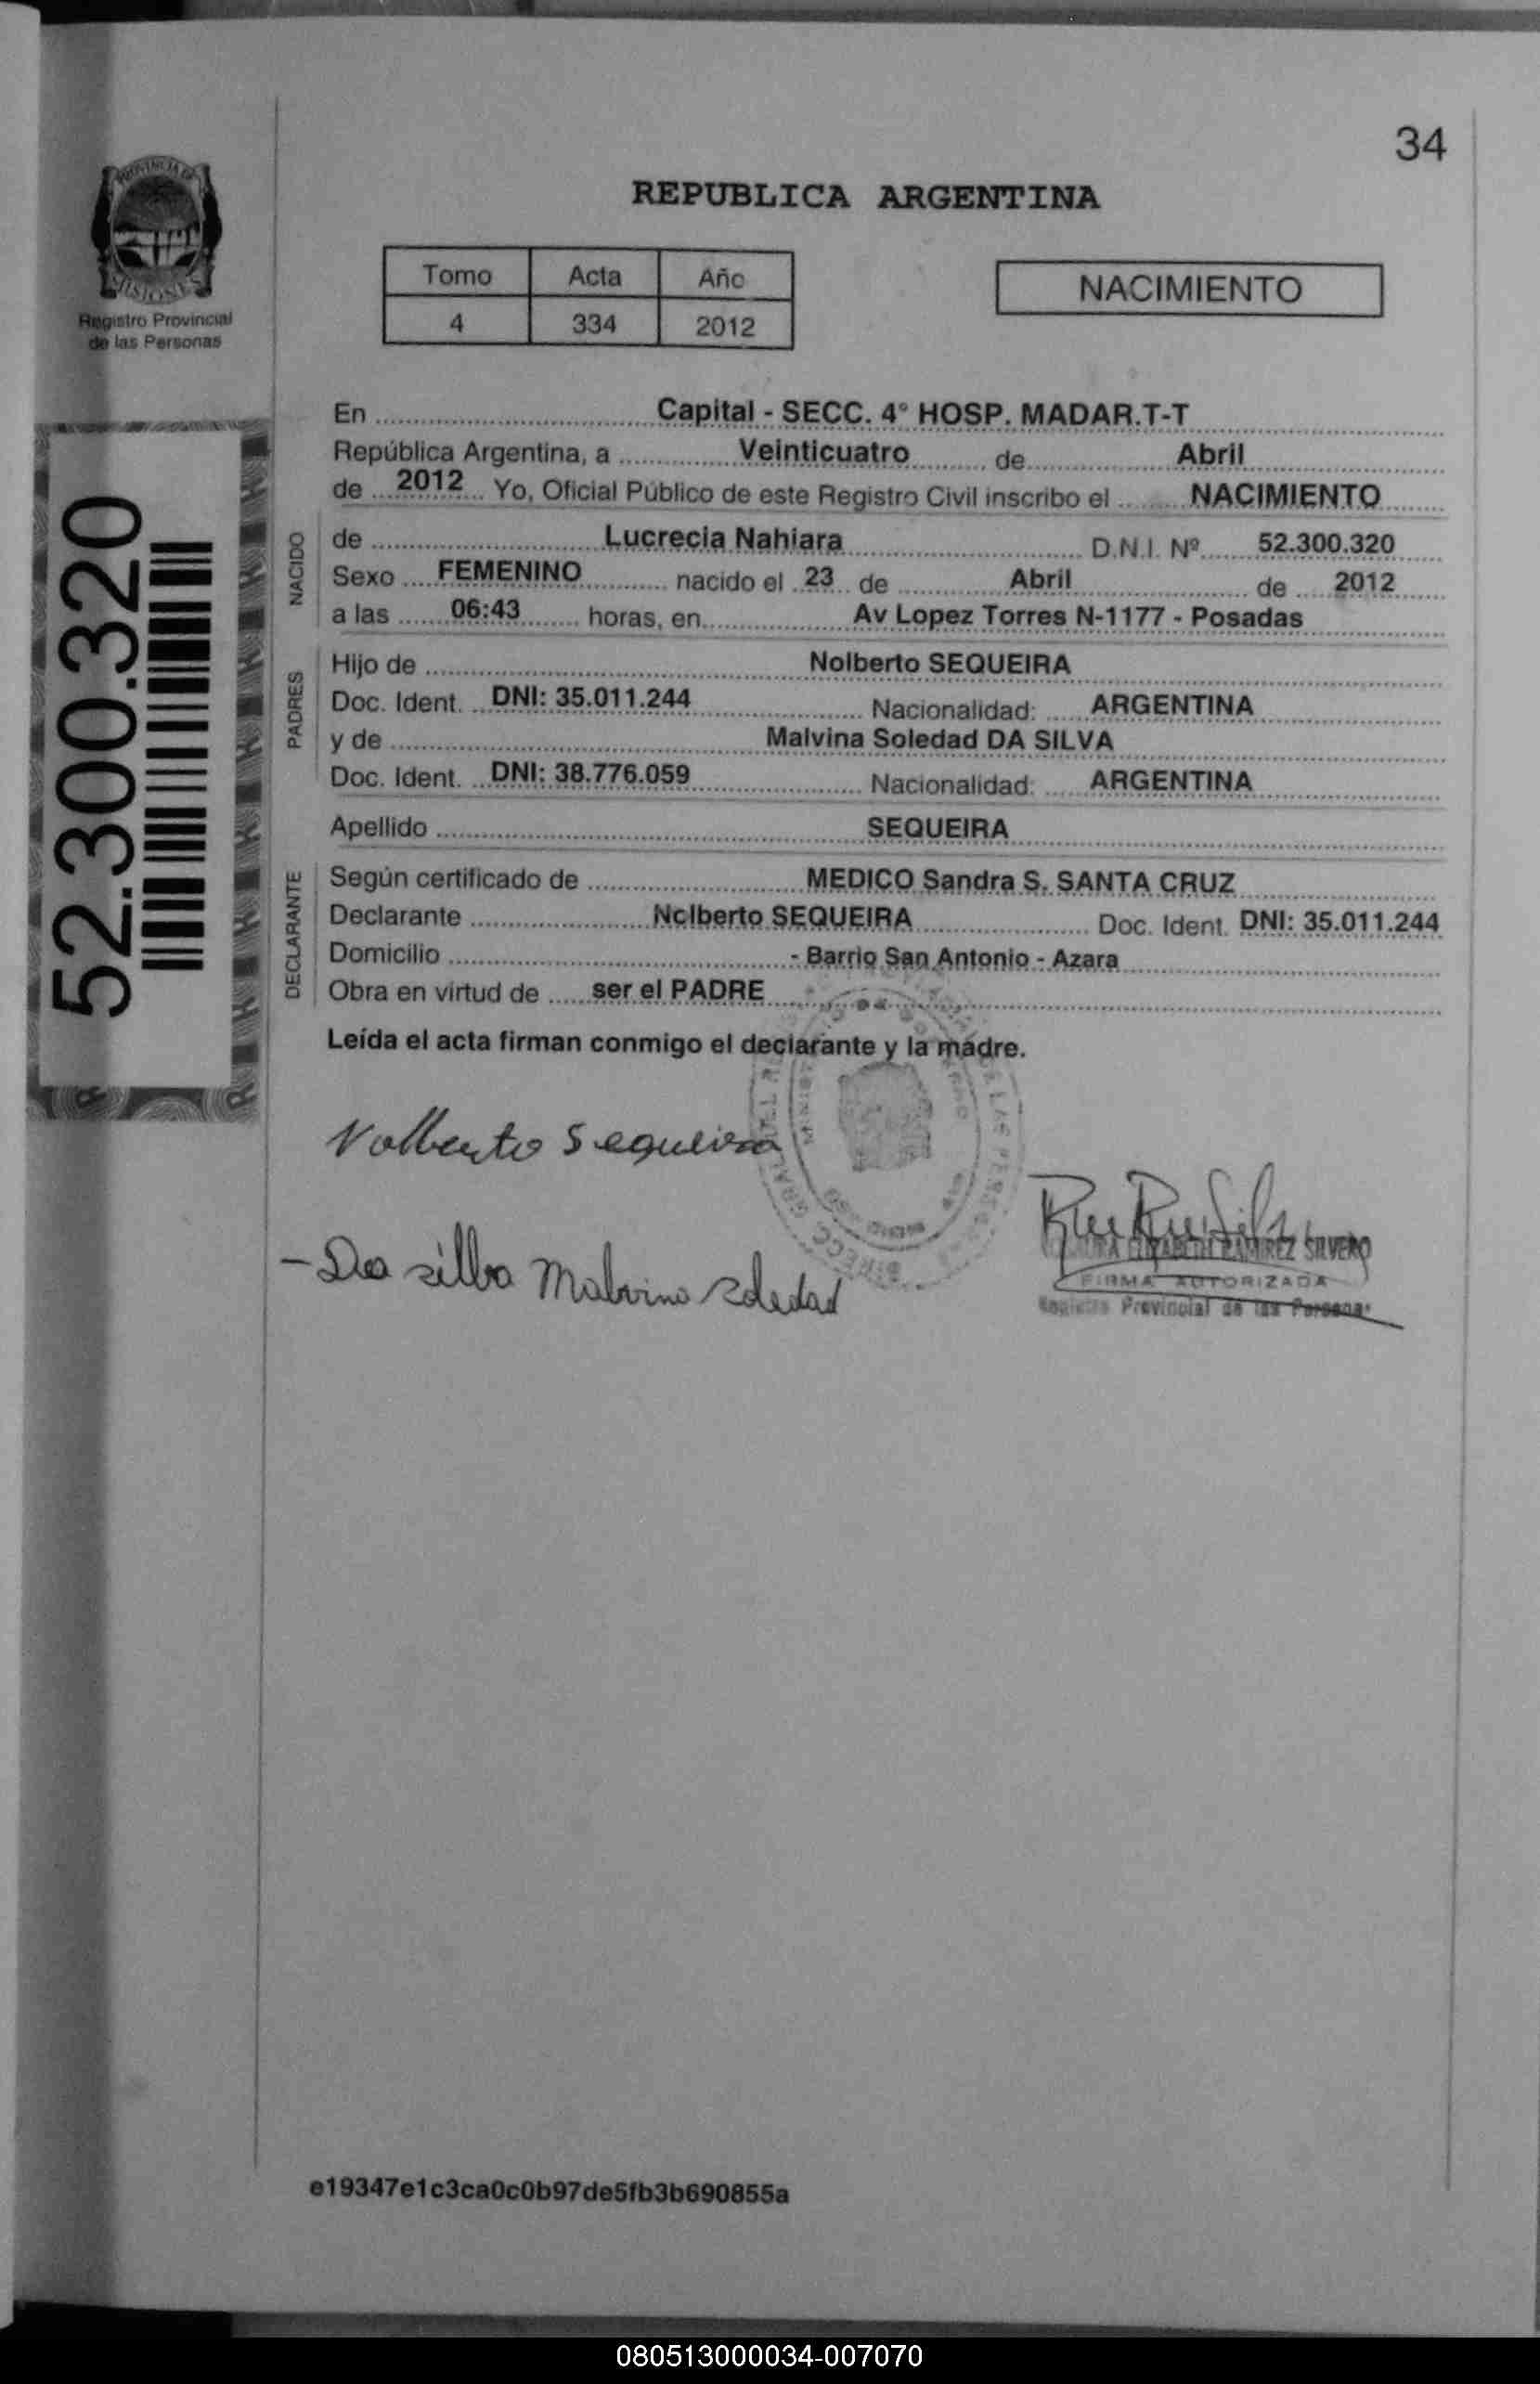 34
PROVINCIA DE
MISIONES
Registro Provincial
de las Personas
REPUBLICA ARGENTINA
Tomo Acta Año
4 334 2012
NACIMIENTO
52.300.320
En Capital - SECC. 4° HOSP. MADAR.T-T
República Argentina, a Veinticuatro de Abril
de 2012 Yo, Oficial Público de este Registro Civil inscribo el NACIMIENTO
NACIDO
de Lucrecia Nahiara D.N.I. Nº 52.300.320
Sexo FEMENINO nacido el 23 de Abril de 2012
a las 06:43 horas, en Av Lopez Torres N-1177 - Posadas
PADRES
Hijo de Nolberto SEQUEIRA
Doc. Ident. DNI: 35.011.244 Nacionalidad: ARGENTINA
y de Malvina Soledad DA SILVA
Doc. Ident. DNI: 38.776.059 Nacionalidad: ARGENTINA
Apellido SEQUEIRA
DECLARANTE
Según certificado de MEDICO Sandra S. SANTA CRUZ
Declarante Nolberto SEQUEIRA Doc. Ident. DNI: 35.011.244
Domicilio - Barrio San Antonio - Azara
Obra en virtud de ser el PADRE
Leída el acta firman conmigo el declarante y la madre.
Nolberto Sequeira
- Da silba Malvina Soledad
ELIZABETH RAMIREZ SILVERO
FIRMA AUTORIZADA
Registro Provincial de las Personas
e19347e1c3ca0c0b97de5fb3b690855a
080513000034-007070